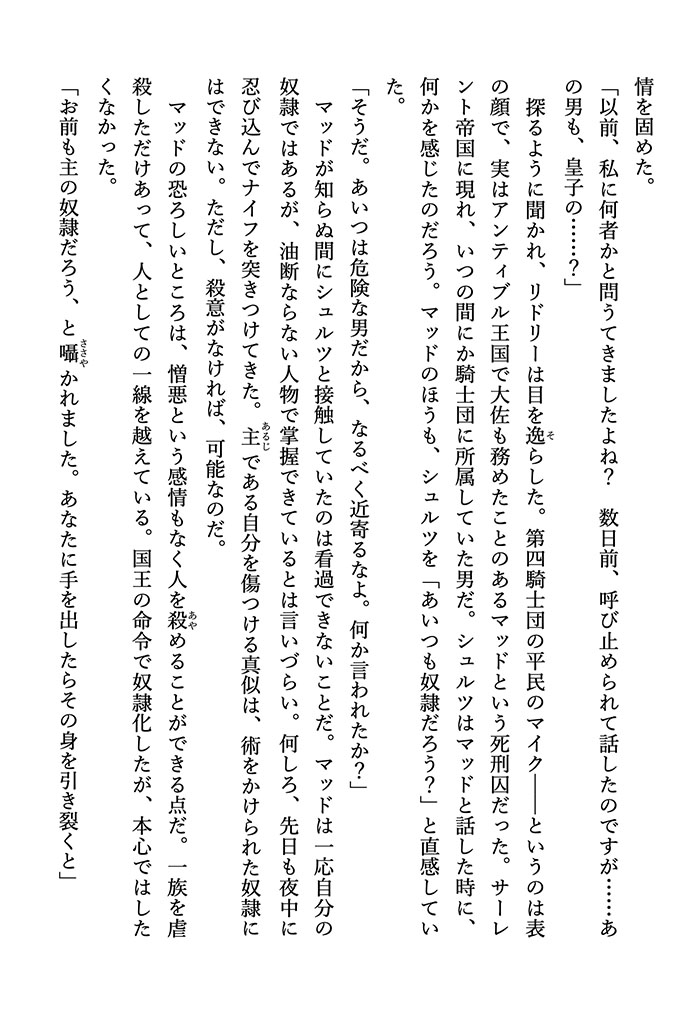 情を固めた。
「以前、私に何者かと問うてきましたよね？　数日前、呼び止められて話したのですが……あ
の男も、皇子の……？」
　探るように聞かれ、リドリーは目を逸らした。第四騎士団の平民のマイク――というのは表
の顔で、実はアンティブル王国で大佐も務めたことのあるマッドという死刑囚だった。サーレ
ント帝国に現れ、いつの間にか騎士団に所属していた男だ。シュルツはマッドと話した時に、
何かを感じたのだろう。マッドのほうも、シュルツを「あいつも奴隷だろう？」と直感してい
た。
「そうだ。あいつは危険な男だから、なるべく近寄るなよ。何か言われたか？」
　マッドが知らぬ間にシュルツと接触していたのは看過できないことだ。マッドは一応自分の
奴隷ではあるが、油断ならない人物で掌握できているとは言いづらい。何しろ、先日も夜中に
忍び込んでナイフを突きつけてきた。主である自分を傷つける真似は、術をかけられた奴隷に
はできない。ただし、殺意がなければ、可能なのだ。
　マッドの恐ろしいところは、憎悪という感情もなく人を殺めることができる点だ。一族を虐
殺しただけあって、人としての一線を越えている。国王の命令で奴隷化したが、本心ではした
くなかった。
「お前も主の奴隷だろう、と囁かれました。あなたに手を出したらその身を引き裂くと」